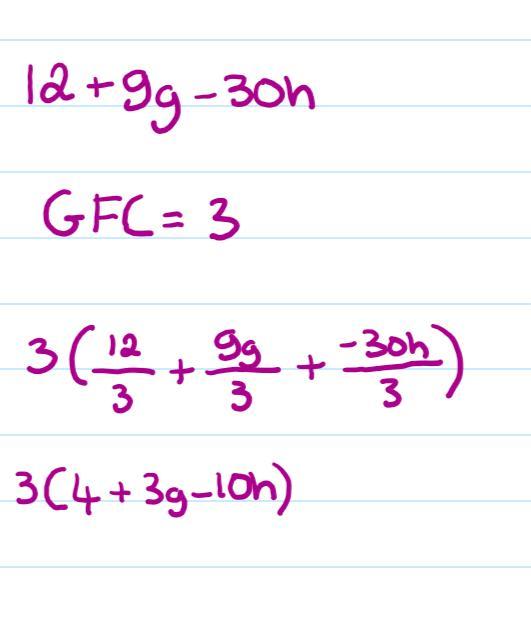 12+9g-30h
GFC = 3
3(12/3 + 9g/3 + -30h/3)
3(4+3g-10h)